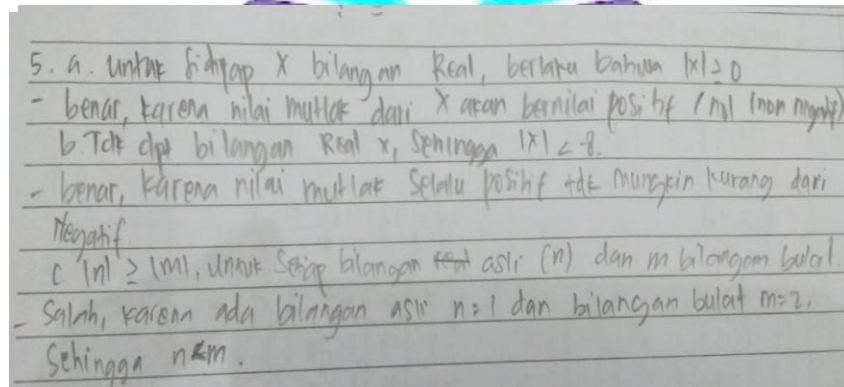 5. a. untuk setiap x bilangan Real, berlaku bahwa |x| ≥ 0
- benar, karena nilai mutlak dari x akan bernilai positif / nol (non negatif)
b. Tdk dpt bilangan Real x, sehingga |x| < -8.
- benar, karena nilai mutlak selalu positif tdk mungkin kurang dari
Negatif.
c |n| ≥ |m|, untuk setiap bilangan asli (n) dan m bilangan bulat.
- Salah, karena ada bilangan asli n=1 dan bilangan bulat m=2,
Sehingga n<m.